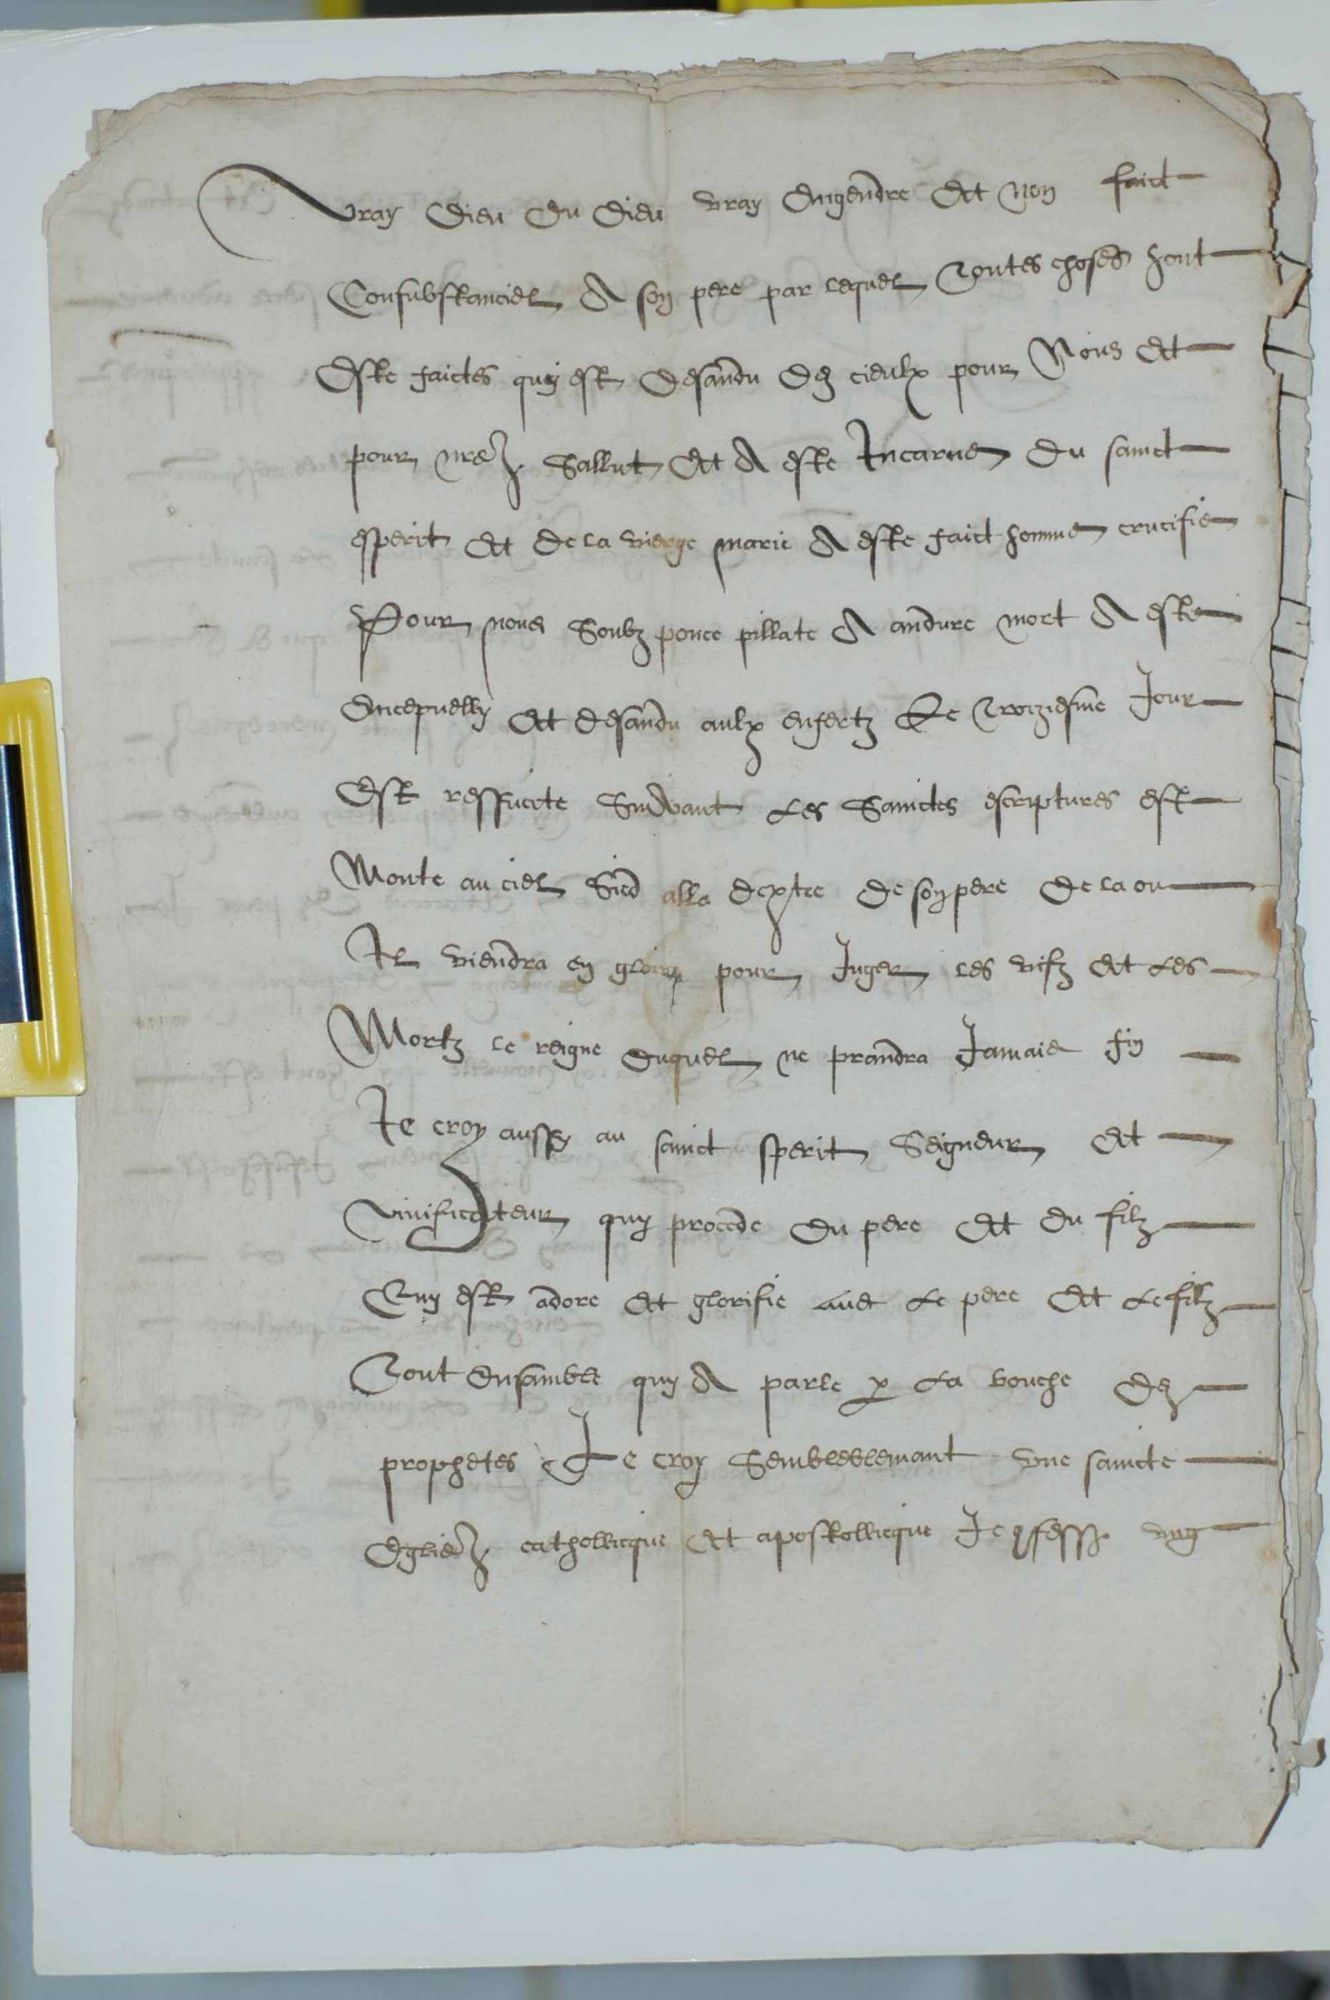 Vray Dieu du Dieu vray Engendre Et non faict
Consubstanciel A son pere par lequel Toutes choses sont
Este faictes quy est Desandu Des cieulx pour Nous Et
pour nre Sallut Et A este Incarne Du sainct
esperit Et De la vierge marie A este faict homme crucifie
Pour nous Soubz ponce pillate A andure mort A este
Encepuelly Et desandu aulx enfertz Le Troiziesme Jour
Est ressucite Suivant Les Sainctes escriptures est
Monte au ciel Sied alla dextre de son pere De la ou
Il viendra en gloire pour Juger les vifz Et Les
Mortz le reigne Duquel ne prandra Jamais fin
Je croy aussy au sainct sperit Seigneur Et
vivificateur quy procede Du pere Et Du filz
Quy est adore Et glorifie Avec Le pere Et Le filz
Tout Ensamble quy A parle p La bouche Des
prophetes Je croy Sembleblemant Une saincte
Eglise catholicque Et apostollicque Je 9fesse ung